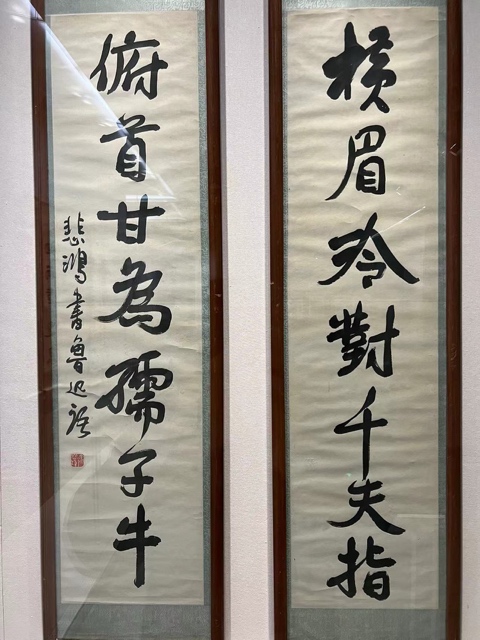 横眉冷對千夫指
俯首甘為孺子牛
悲鴻書魯迅語